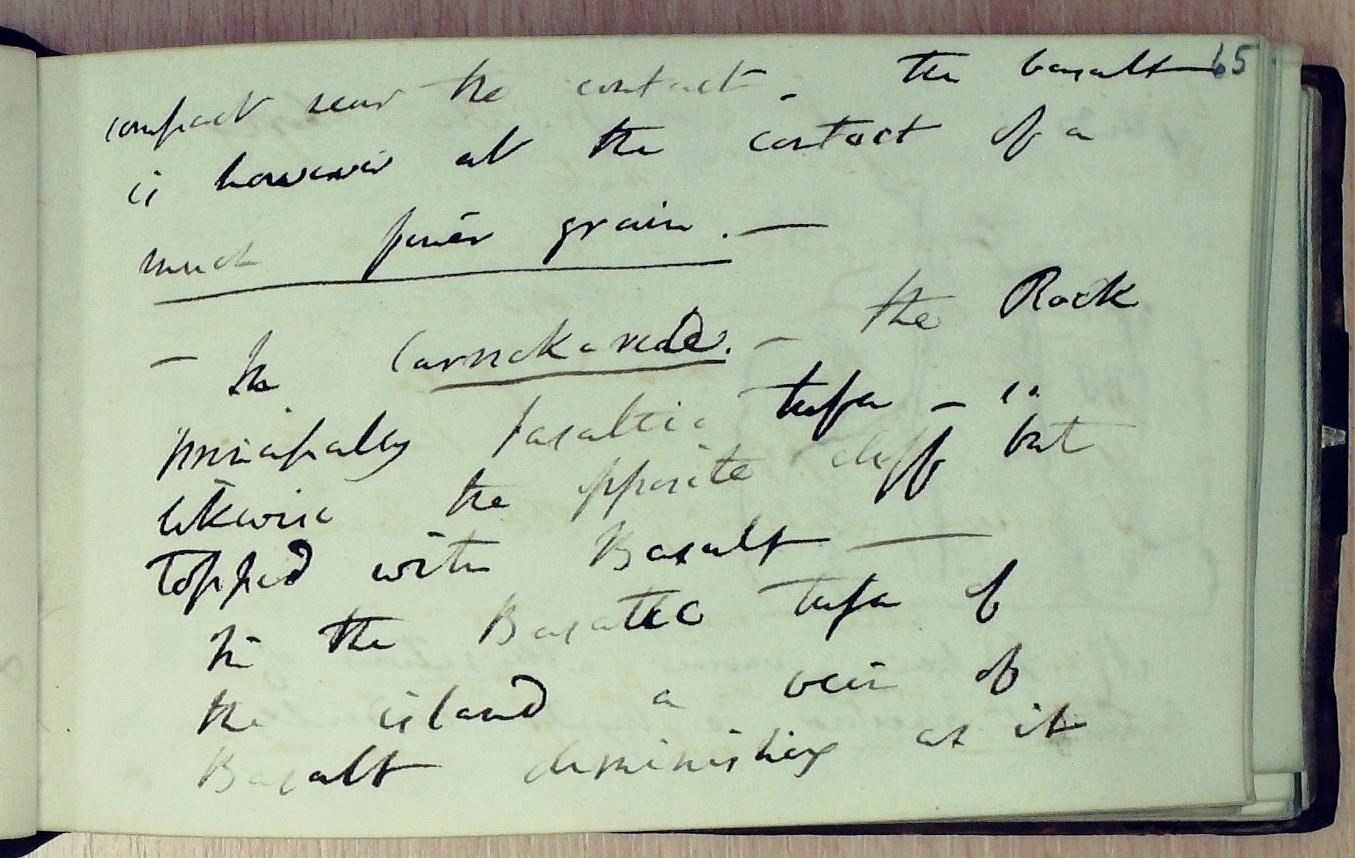 65
compact near the contact - the basalt
is however at the contact of a
much finer grain. —
— In Carrickarede. — the Rock
principally basaltic tufa — is
likewise the opposite cliff but
Topped with Basalt —
In the Basaltic tufa of
the island a vein of
Basalt diminishing as it